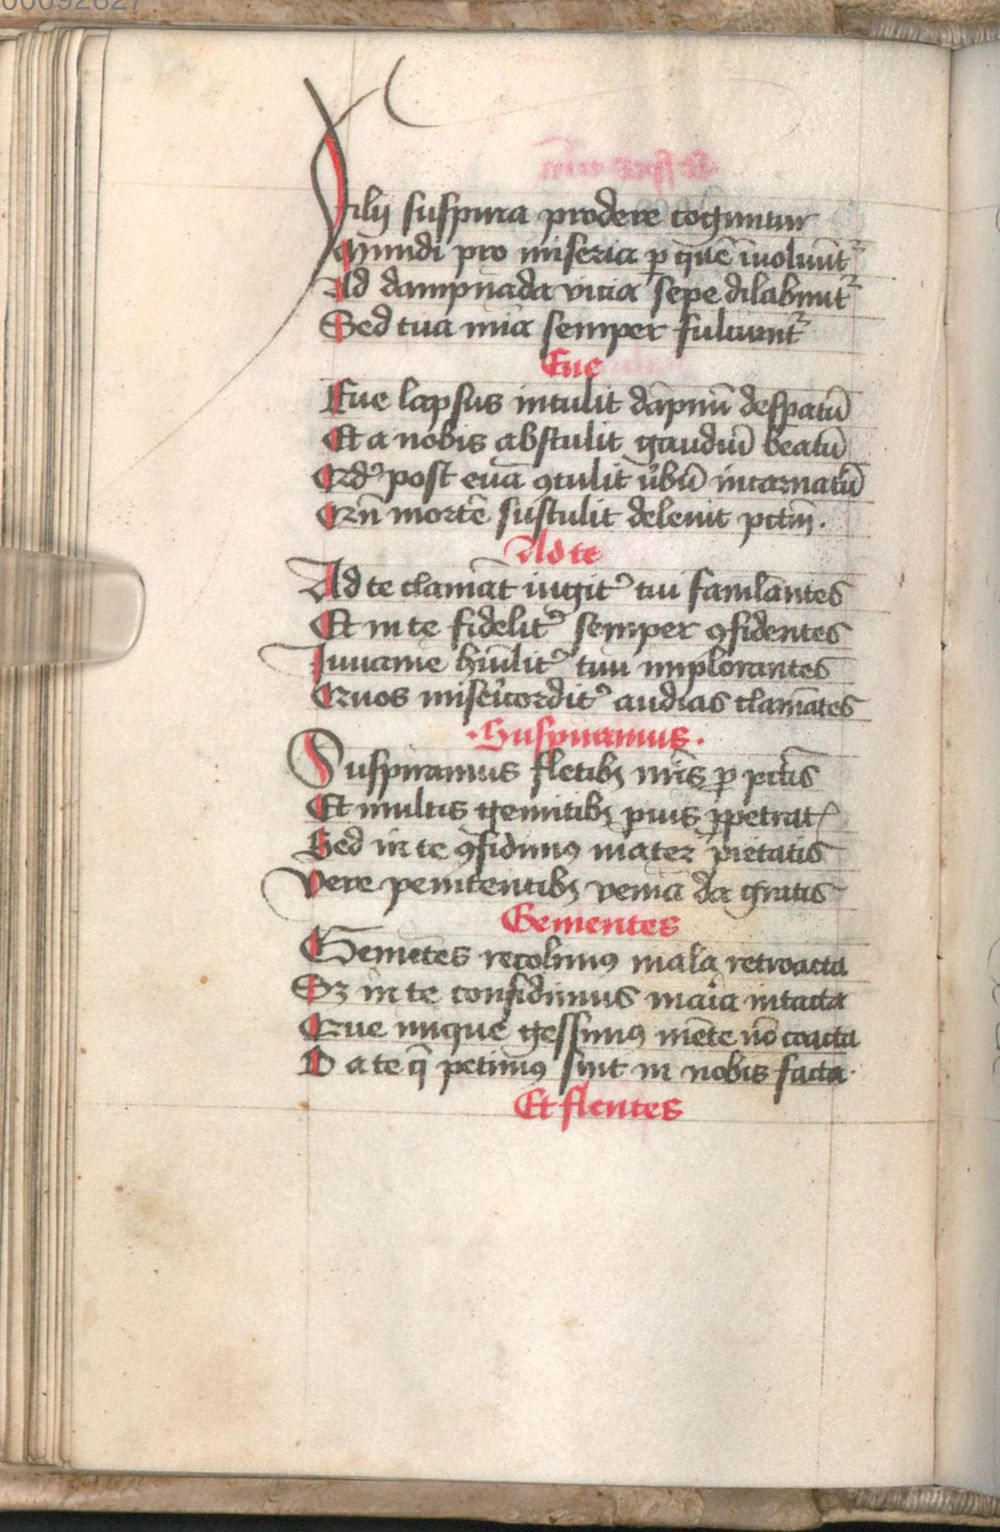 00092627
Filij suspiria prodere coguntur
Mundi pro miseria p quē īuoluūt᷑
Ad dampnada vicia sepe dilabunt᷑
Sed tua mīa semper fulciunt᷑
Eue
Eue lapsus intulit dāpnū desṗatū
Et a nobis abstulit gaudiū beatū
post euā ꝯtulit v̄bū incarnatū
mortē sustulit deleuit pctm̄.
Ad te
Ad te clamāt iugit᷑ tui famlāntes
Et in te fidelit᷑ semper ꝯfidentes
Iuuamē hūilit᷑ tuū implorantes
Quos mis̄icordit᷑ audias clamātes
. Suspiramus .
Suspiramus fletibꝫ nr̄is ꝓ pctīs
Et multis gemitibꝫ pius īpetrat᷑
Sed in te ꝯfidimꝰ mater pietatis
Vere penitentibꝫ veniā da gratis
Gementes
Gemētes recolimꝰ mala retroacta
Sꝫ in te confidimus maīa intacta
Que inique gessimꝰ mēte nō coacta
D a te q̄ petimꝰ sint in nobis facta.
Et flentes